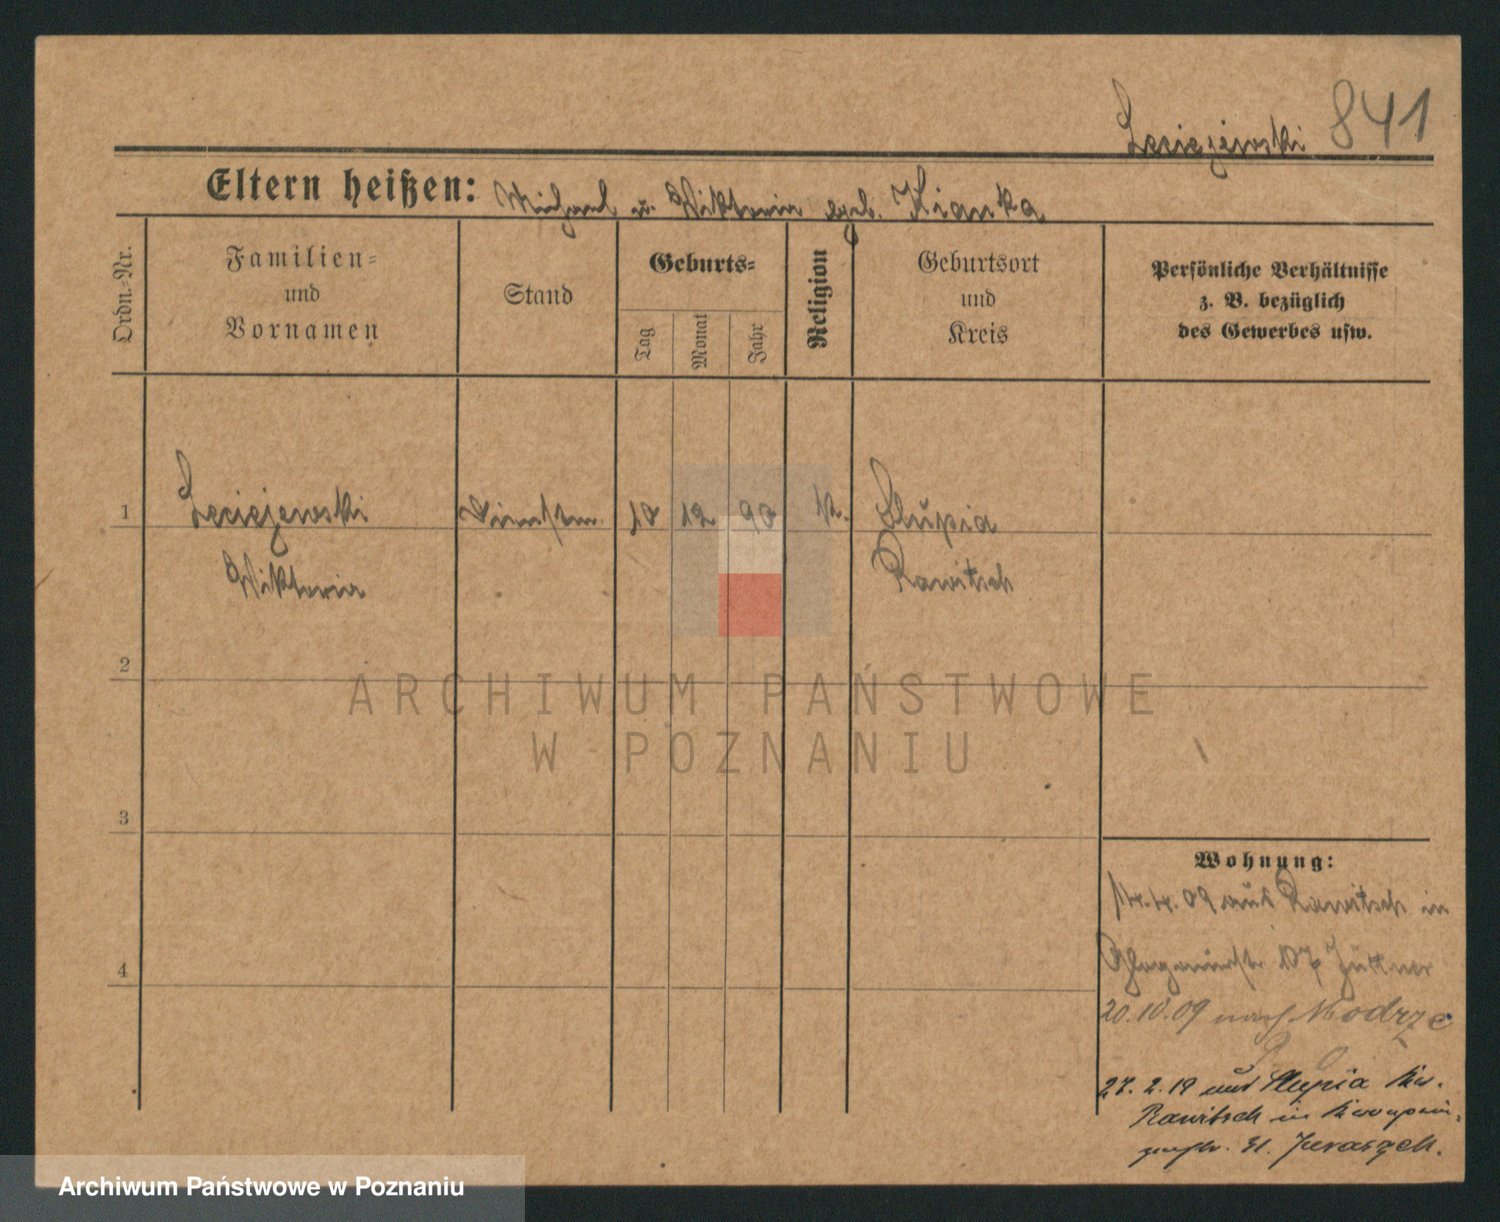 Leciejewski 841
Eltern heißen: Michael u. Wiktoria geb. Kianka
Ordn.-Nr.
Familien-
und
Vornamen
Stand
Geburts-
Tag
Monat
Jahr
Religion
Geburtsort
und
Kreis
Persönliche Verhältnisse
z. B. bezüglich
des Gewerbes usw.
1 Leciejewski 10 12 90 k. Slupia
Wiktoria Rawitsch
2
ARCHIWUM PAŃSTWOWE
W POZNANIU
3
Wohnung:
09 aus Rawitsch in
4
Jüttner
20.10.09 nach Modrze
27. 2. 19 aus Slupia Kr.
Rawitsch in
31.
Archiwum Państwowe w Poznaniu